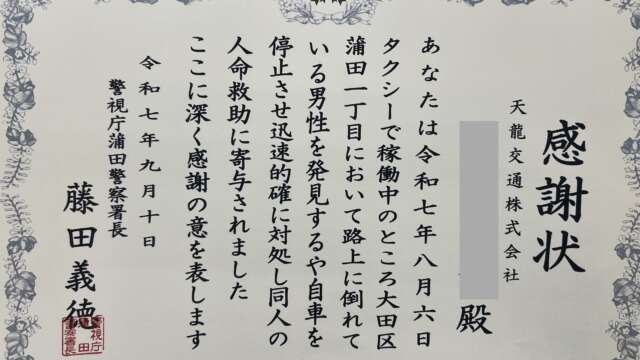 感謝状
天龍交通株式会社
殿
あなたは令和七年八月六日
タクシーで稼働中のところ大田区
蒲田一丁目において路上に倒れて
いる男性を発見するや自車を
停止させ迅速的確に対処し同人の
人命救助に寄与されました
ここに深く感謝の意を表します
令和七年九月十日
警視庁蒲田警察署長
藤田義徳